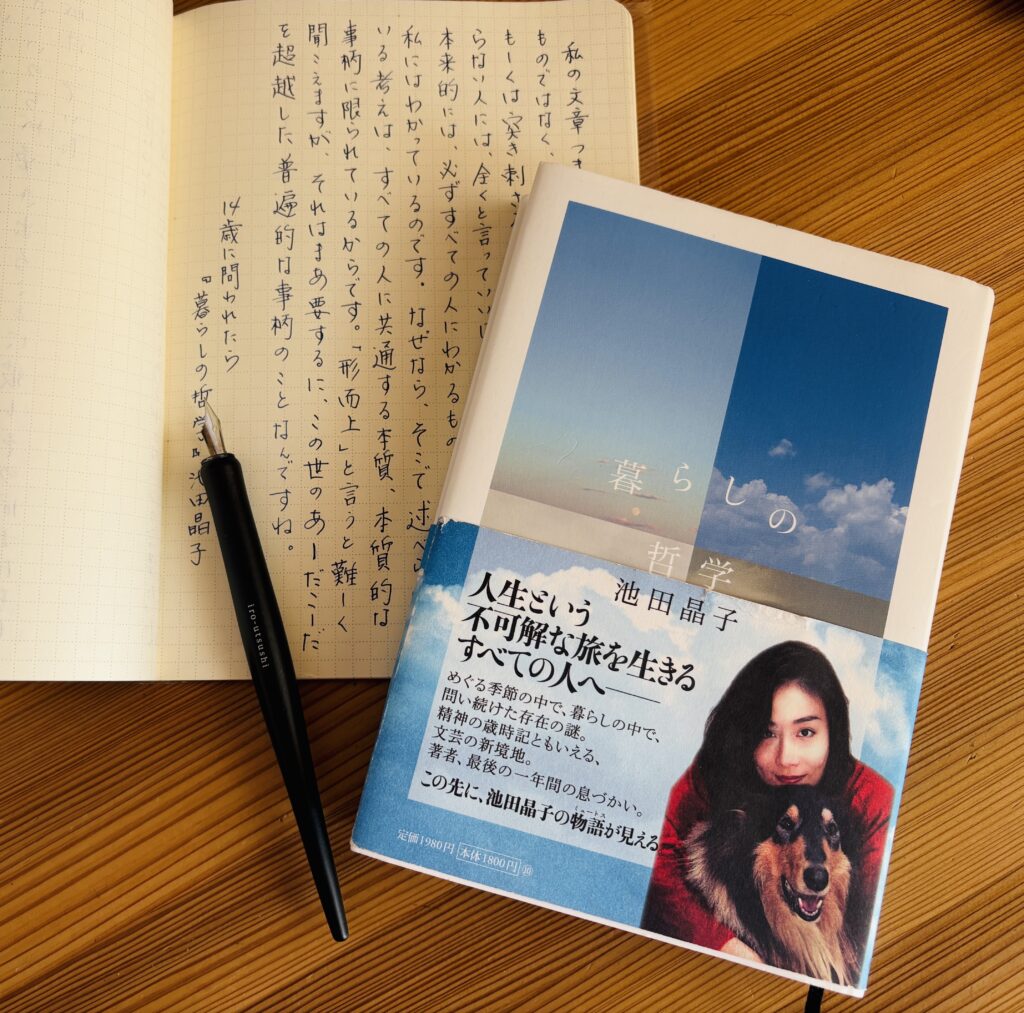 私の文章 つま
ものではなく、
もしくは突き刺さ
らない人には、全くと言っていいほ
本来的には、必ずすべての人にわかるもの
私にはわかっているのです。なぜなら、そこで述べら
いる考えは、すべての人に共通する本質、本質的な
事柄に限られているからです。「形而上」と言うと難しく
聞こえますが、それはまあ要するに、この世のあーだこーだ
を超越した普遍的な事柄のことなんですね。
14歳に問われたら
『暮らしの哲学』池田晶子
iro-utsushi
暮らしの
哲学
池田晶子
人生という
不可解な旅を生きる
すべての人へ――
めぐる季節の中で、暮らしの中で、
問い続けた存在の謎。
精神の歳時記ともいえる、
文芸の新境地。
著者、最後の一年間の息づかい。
この先に、池田晶子の物語が見える
ミュートス
定価1980円 本体1800円 ⑩